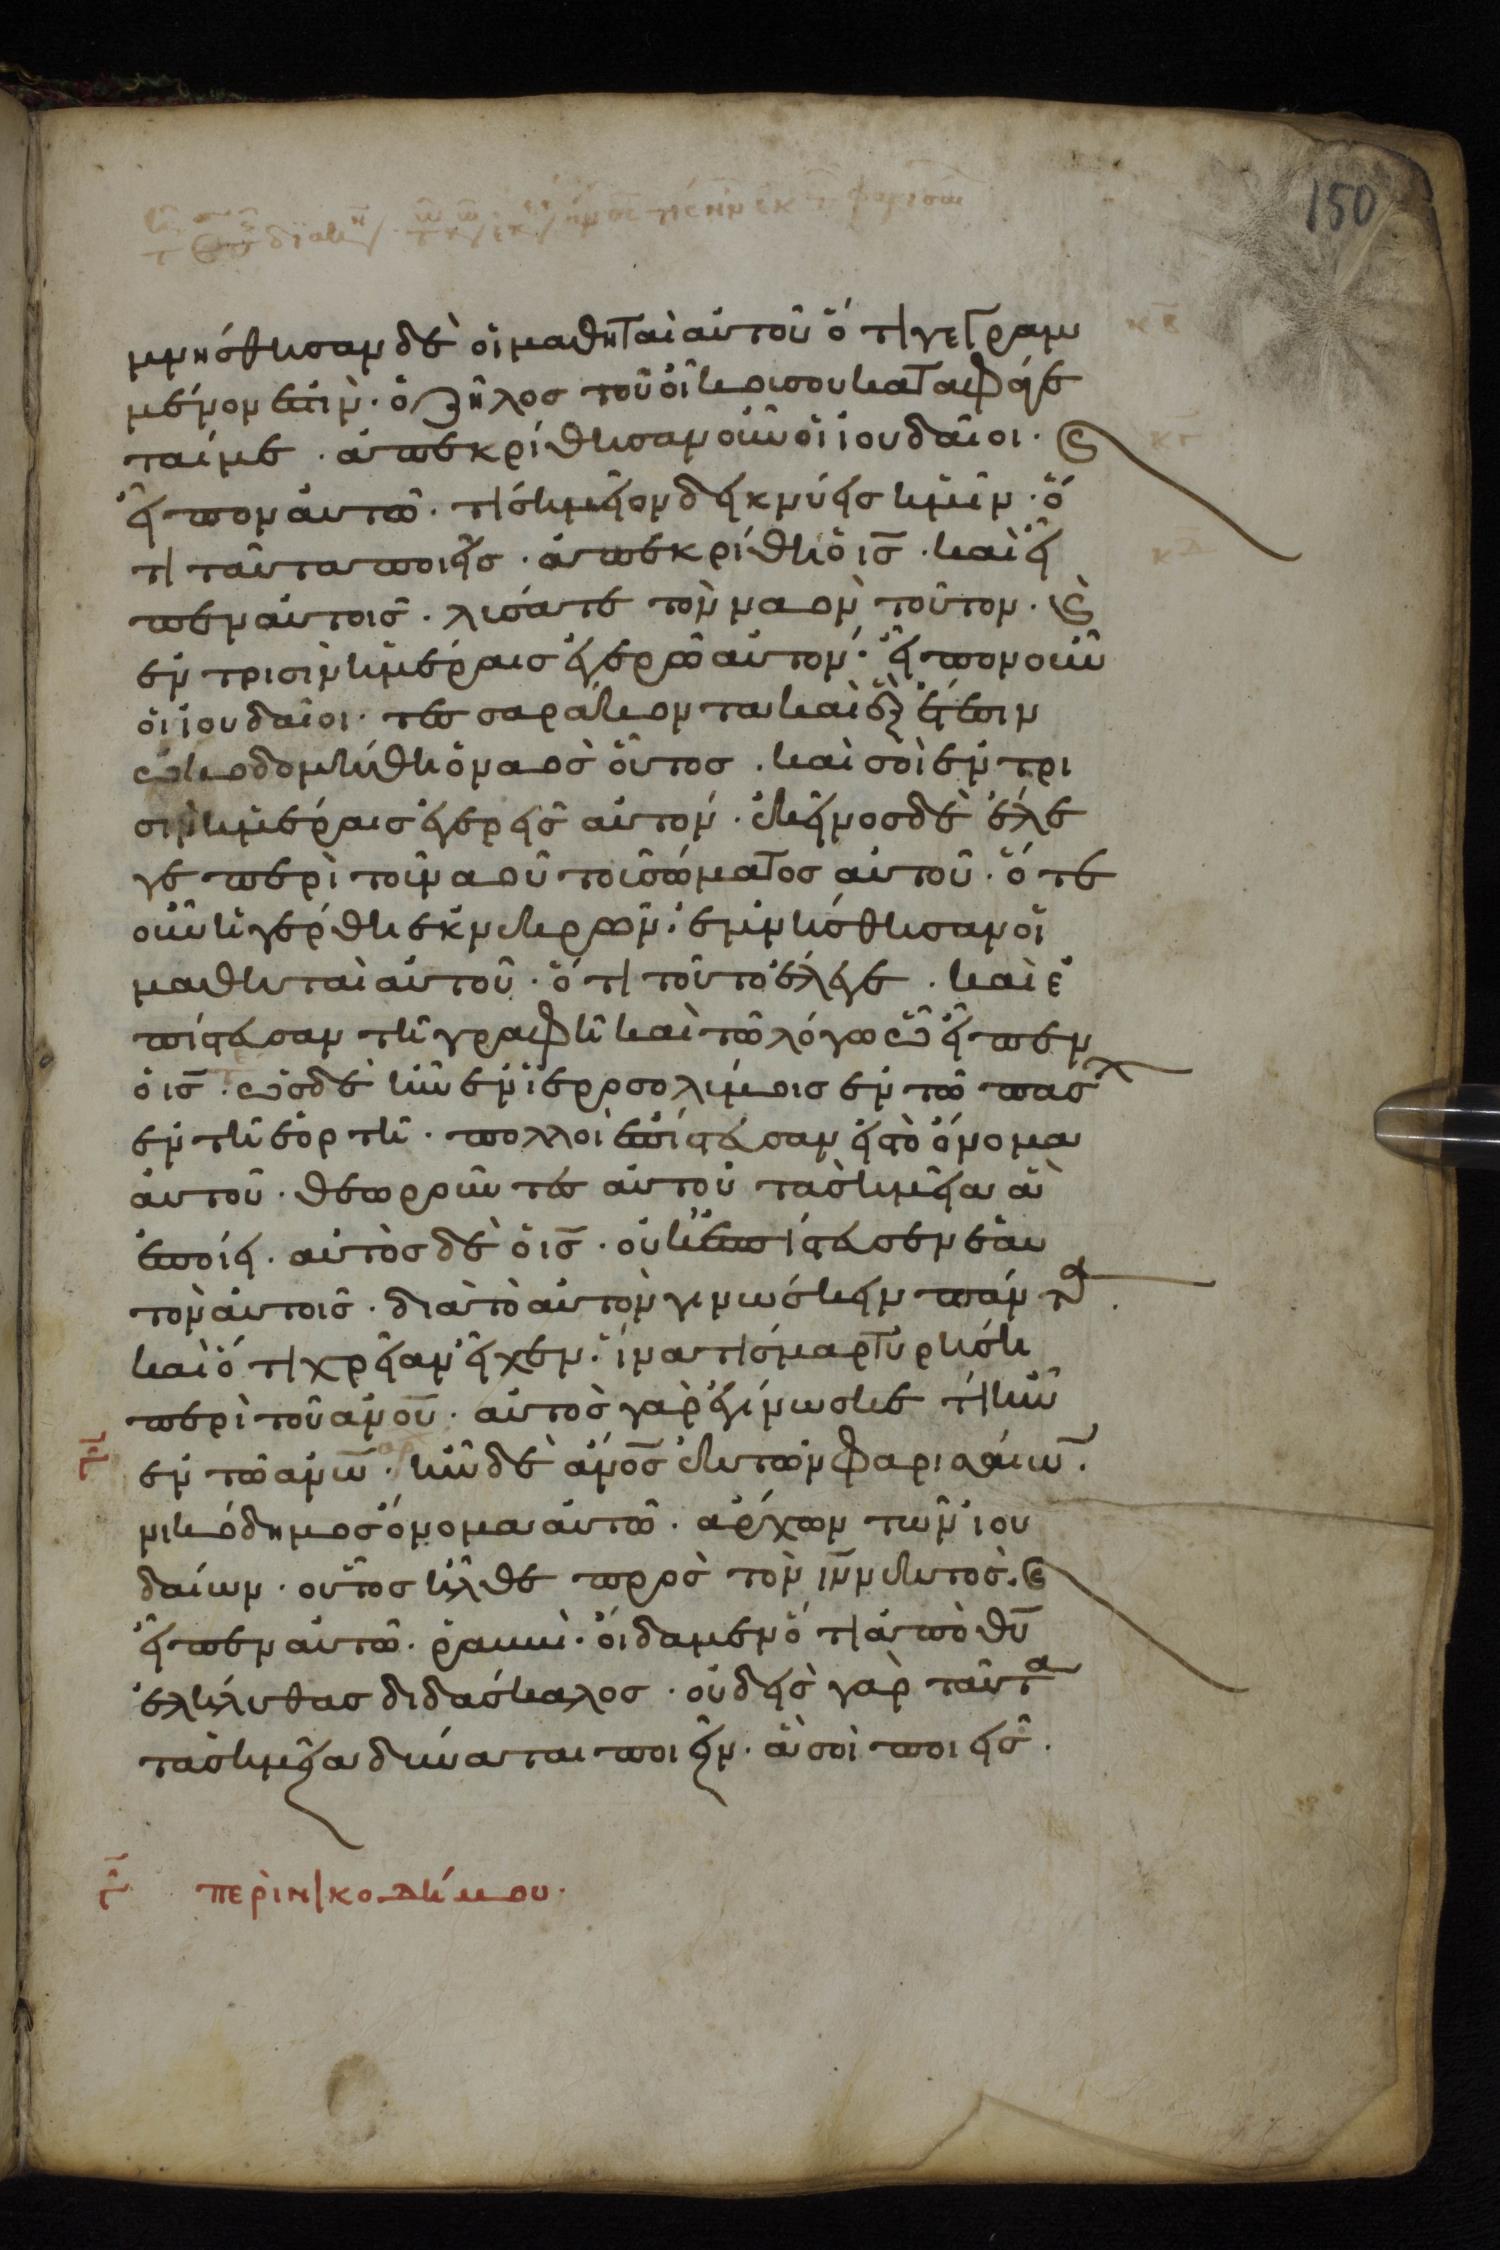 150
μνήσθησαν δὲ οἱ μαθηταὶ αὐτοῦ ὅτι γεγραμ
μένον ἐστὶν· ὁ ζῆλος τοῦ οἴκου σου καταφάγε
ταί με· ἀπεκρίθησαν οὖν οἱ ἰουδαῖοι· ϗ
εἶπον αὐτῶ· τί σημεῖον δεικνύεις ἡμῖν· ὅ
τι ταῦτα ποιεῖς· ἀπεκρίθη ὁ ις̅· καὶ εἶ
πεν αὐτοῖς· λύσατε τὸν ναὸν τοῦτον· ϗ
ἐν τρισὶν ἡμέραις ἐγερῶ αὐτόν· εἶπον οὖν
οἱ ἰουδαῖοι· τεσσαράκοντα καὶ ἓξ ἔτεσιν
ὠκοδομήθη ὁ ναὸς οὗτος· καὶ σοὶ ἐν τρι
σὶν ἡμέραις ἐγερεῖς αὐτόν· ἐκεῖνος δὲ ἔλε
γε περὶ τοῦ ναοῦ τοῦ σώματος αὐτοῦ· ὅτε
οὖν ἠγέρθη ἐκ νεκρῶν· ἐμνήσθησαν οἱ
μαθηταὶ αὐτοῦ· ὅτι τοῦτο ἔλεγε· καὶ ἐ
πίστευσαν τῆ γραφῆ καὶ τῶ λόγω ὧ εἶπεν
ὁ ις̅· ὡς δὲ ἦν ἐν ἱεροσολύμοις ἐν τῶ πάσχ
ἐν τῆ ἑορτῆ· πολλοὶ ἐπίστευσαν εἰς τὸ ὄνομα
αὐτοῦ· θεωροῦντες αὐτοῦ τὰ σημεῖα ἃ
ἐποίει· αὐτὸς δὲ ὁ ις̅· οὐκ ἐπίστευσεν ἑαυ
τὸν αὐτοῖς· διὰ τὸ αὐτὸν γινώσκειν πάντα·
καὶ ὅτι χρείαν εἶχεν· ἵνα τις μαρτυρήση
περὶ τοῦ ἀνου̅· αὐτὸς γὰρ ἐγίνωσκε τί ἦν
ἐν τῶ ἀνω̅· ἦν δὲ ἄνος̅ ἐκ τῶν φαρισαίων·
νικόδημος ὄνομα αὐτῶ· ἄρχων τῶν ἰου
δαίων· οὗτος ἦλθε πρὸς τὸν ιν̅ νυκτὸς· ϗ
εἶπεν αὐτῶ· ῥαββὶ· οἴδαμεν ὅτι ἀπὸ θυ̅
ἐλήλυθας διδάσκαλος· οὐδεὶς γὰρ ταῦτα
τὰ σημεῖα δύναται ποιεῖν· ἃ σοὶ ποιεῖς·
περὶ νικοδήμου·